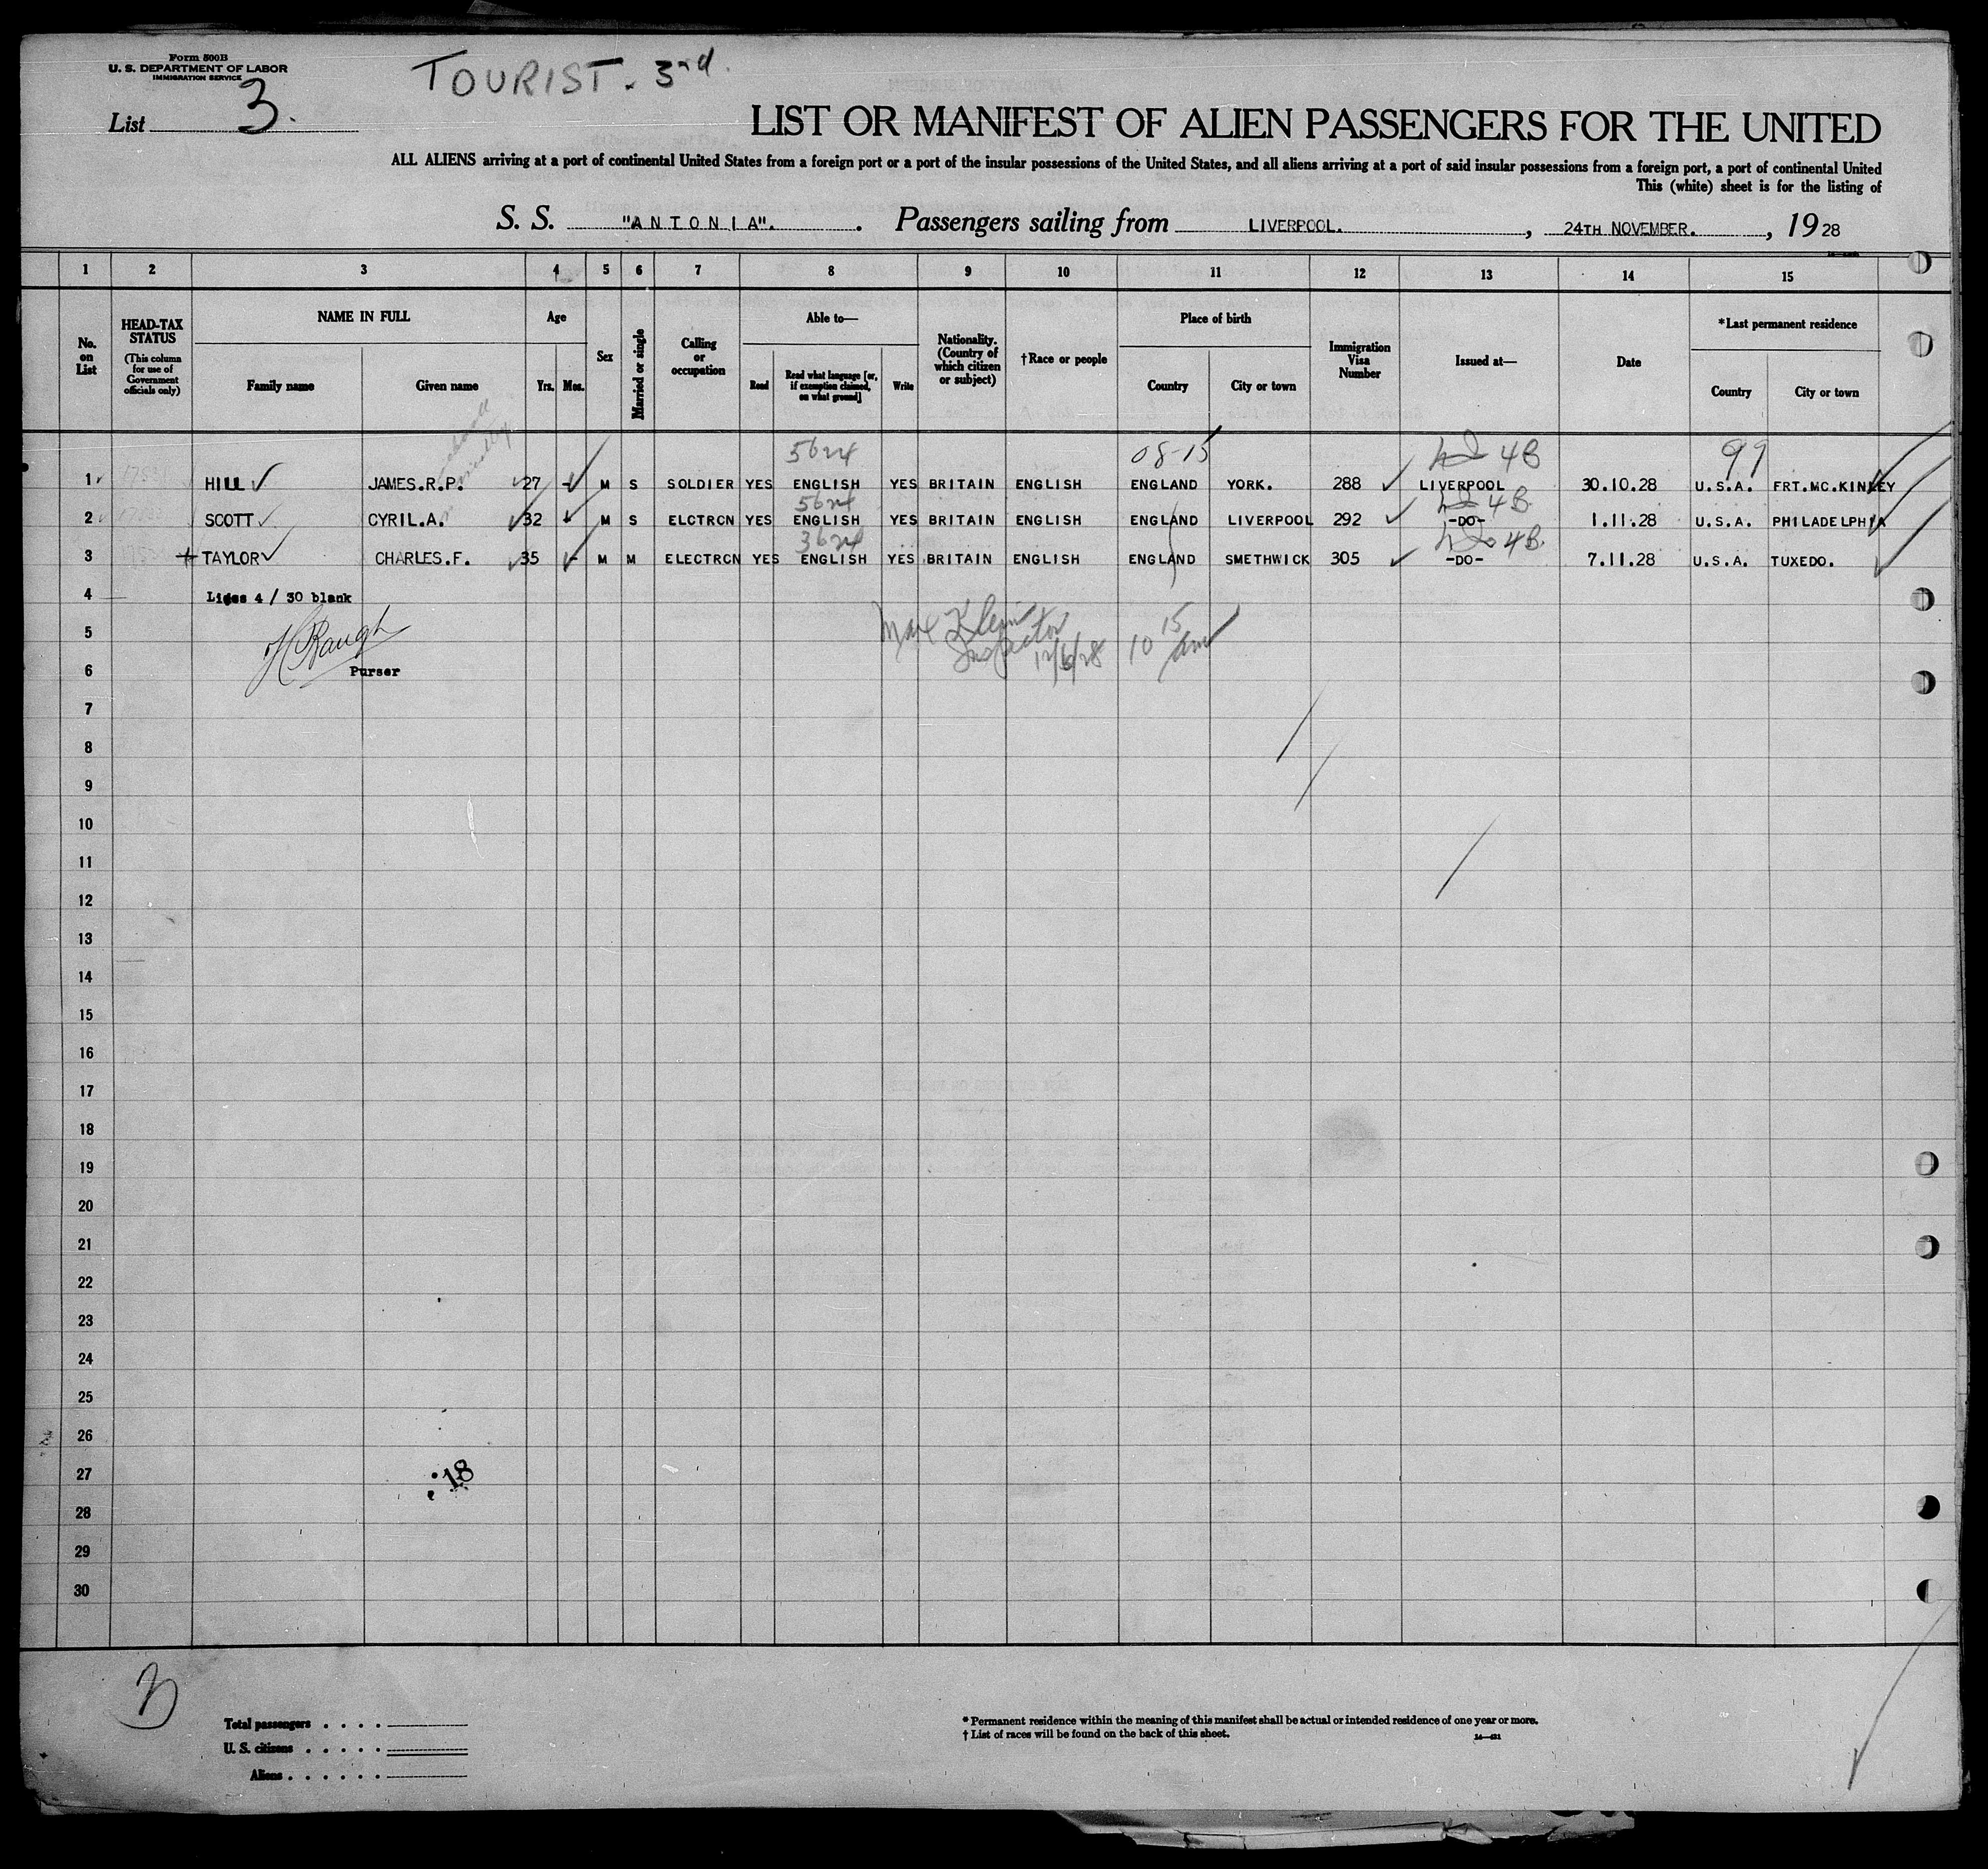 Form 500B
U. S. DEPARTMENT OF LABOR
IMMIGRATION SERVICE
TOURIST. 3rd.
List 3.
LIST OR MANIFEST OF ALIEN PASSENGERS FOR THE UNITED
ALL ALIENS arriving at a port of continental United States from a foreign port or a port of the insular possessions of the United States, and all aliens arriving at a port of said insular possessions from a foreign port, a port of continental United
This (white) sheet is for the listing of
S. S. "ANTONIA". Passengers sailing from LIVERPOOL. , 24TH NOVEMBER. , 1928
1 2 3 4 5 6 7 8 9 10 11 12 13 14 15
No. on List
HEAD-TAX STATUS (This column for use of Government officials only)
NAME IN FULL
Family name Given name
Age
Yrs. Mos.
Sex
Married or single
Calling or occupation
Able to—
Read Read what language [or, if exemption claimed, on what ground] Write
Nationality. (Country of which citizen or subject)
†Race or people
Place of birth
Country City or town
Immigration Visa Number
Issued at—
Date
*Last permanent residence
Country City or town
5624 08-15 4B 99
1 HILL JAMES.R.P. 27 - M S SOLDIER YES ENGLISH YES BRITAIN ENGLISH ENGLAND YORK. 288 LIVERPOOL 30.10.28 U.S.A. FRT.MC.KINLEY
5624 4B
2 SCOTT CYRIL.A. 32 M S ELCTRCN YES ENGLISH YES BRITAIN ENGLISH ENGLAND LIVERPOOL 292 -DO- 1.11.28 U.S.A. PHILADELPHIA
3624 4B.
3 TAYLOR CHARLES.F. 35 - M M ELECTRCN YES ENGLISH YES BRITAIN ENGLISH ENGLAND SMETHWICK 305 -DO- 7.11.28 U.S.A. TUXEDO.
4 Lines 4 / 30 blank
5 Max Klein 10 15 am
Inspector
12/6/28
6 Purser
7
8
9
10
11
12
13
14
15
16
17
18
19
20
21
22
23
24
25
26
27
18
28
29
30
3
Total passengers . . . .
U. S. citizens . . . . .
Aliens . . . . . .
* Permanent residence within the meaning of this manifest shall be actual or intended residence of one year or more.
† List of races will be found on the back of this sheet.